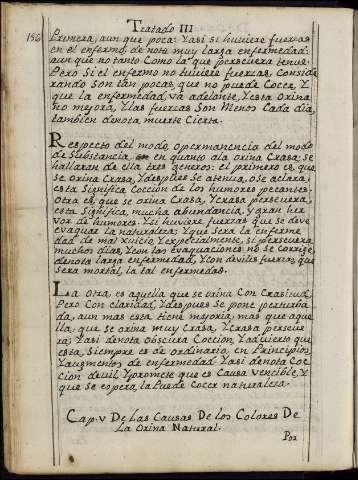 Tratado III
156
Primera, aun que poca: Y asi si huuiere fuerzas
en el enfermo, de nota muy larga enfermedad:
aun que no tanto Como la que perseuera tenue.
Pero si el enfermo no huuiere fuerzas, conside
rando son tan pocas, que no puede Cocer, Y
que la enfermedad, va adelante, Y esta orina
no mejora, Y las fuerzas son menos Cada dia,
tambien denota muerte Cierta.
Respecto del modo, o permanencia del modo
de substancia, en quanto a la orina Crasa, se
hallaran de ella tres generos: el primero es, que
se orina Crasa, Y despues se atenua, o se aclara,
esta significa Coccion de los humores pecantes.
Otra es, que se orina Crasa, Y Crasa perseuera,
esta significa, mucha abundancia, y gran her
vor de humores. Y si huuiere fuerzas que se deve
evaquar la naturaleza; Y que sera la enferme
dad de mal xuicio, Y expecialmente, si perseuera
muchos dias, Y con las evaquaciones no se Corrige,
denota larga enfermedad, Y con deviles fuerzas que
sera mortal, la tal enfermedad.
La otra es aquella que se orina Con Crasitud,
Pero Con Claridad, Y despues se pone perturba
da, aun mas esta tiene mejoria, mas que aque
lla, que se orina muy Crasa, Y Crasa perseue
ra; Y asi denota obscura Coccion, Y advierto que
esta, siempre es de ordinario, en Principios
Y augmentos de enfermedad. Y asi denota Coc
cion devil, Y promete que es Causa vencible, Y
que se espera, la Puede Cocer naturaleza.
Cap. V De Las Causas De los Colores De
La Orina Natural.
Por